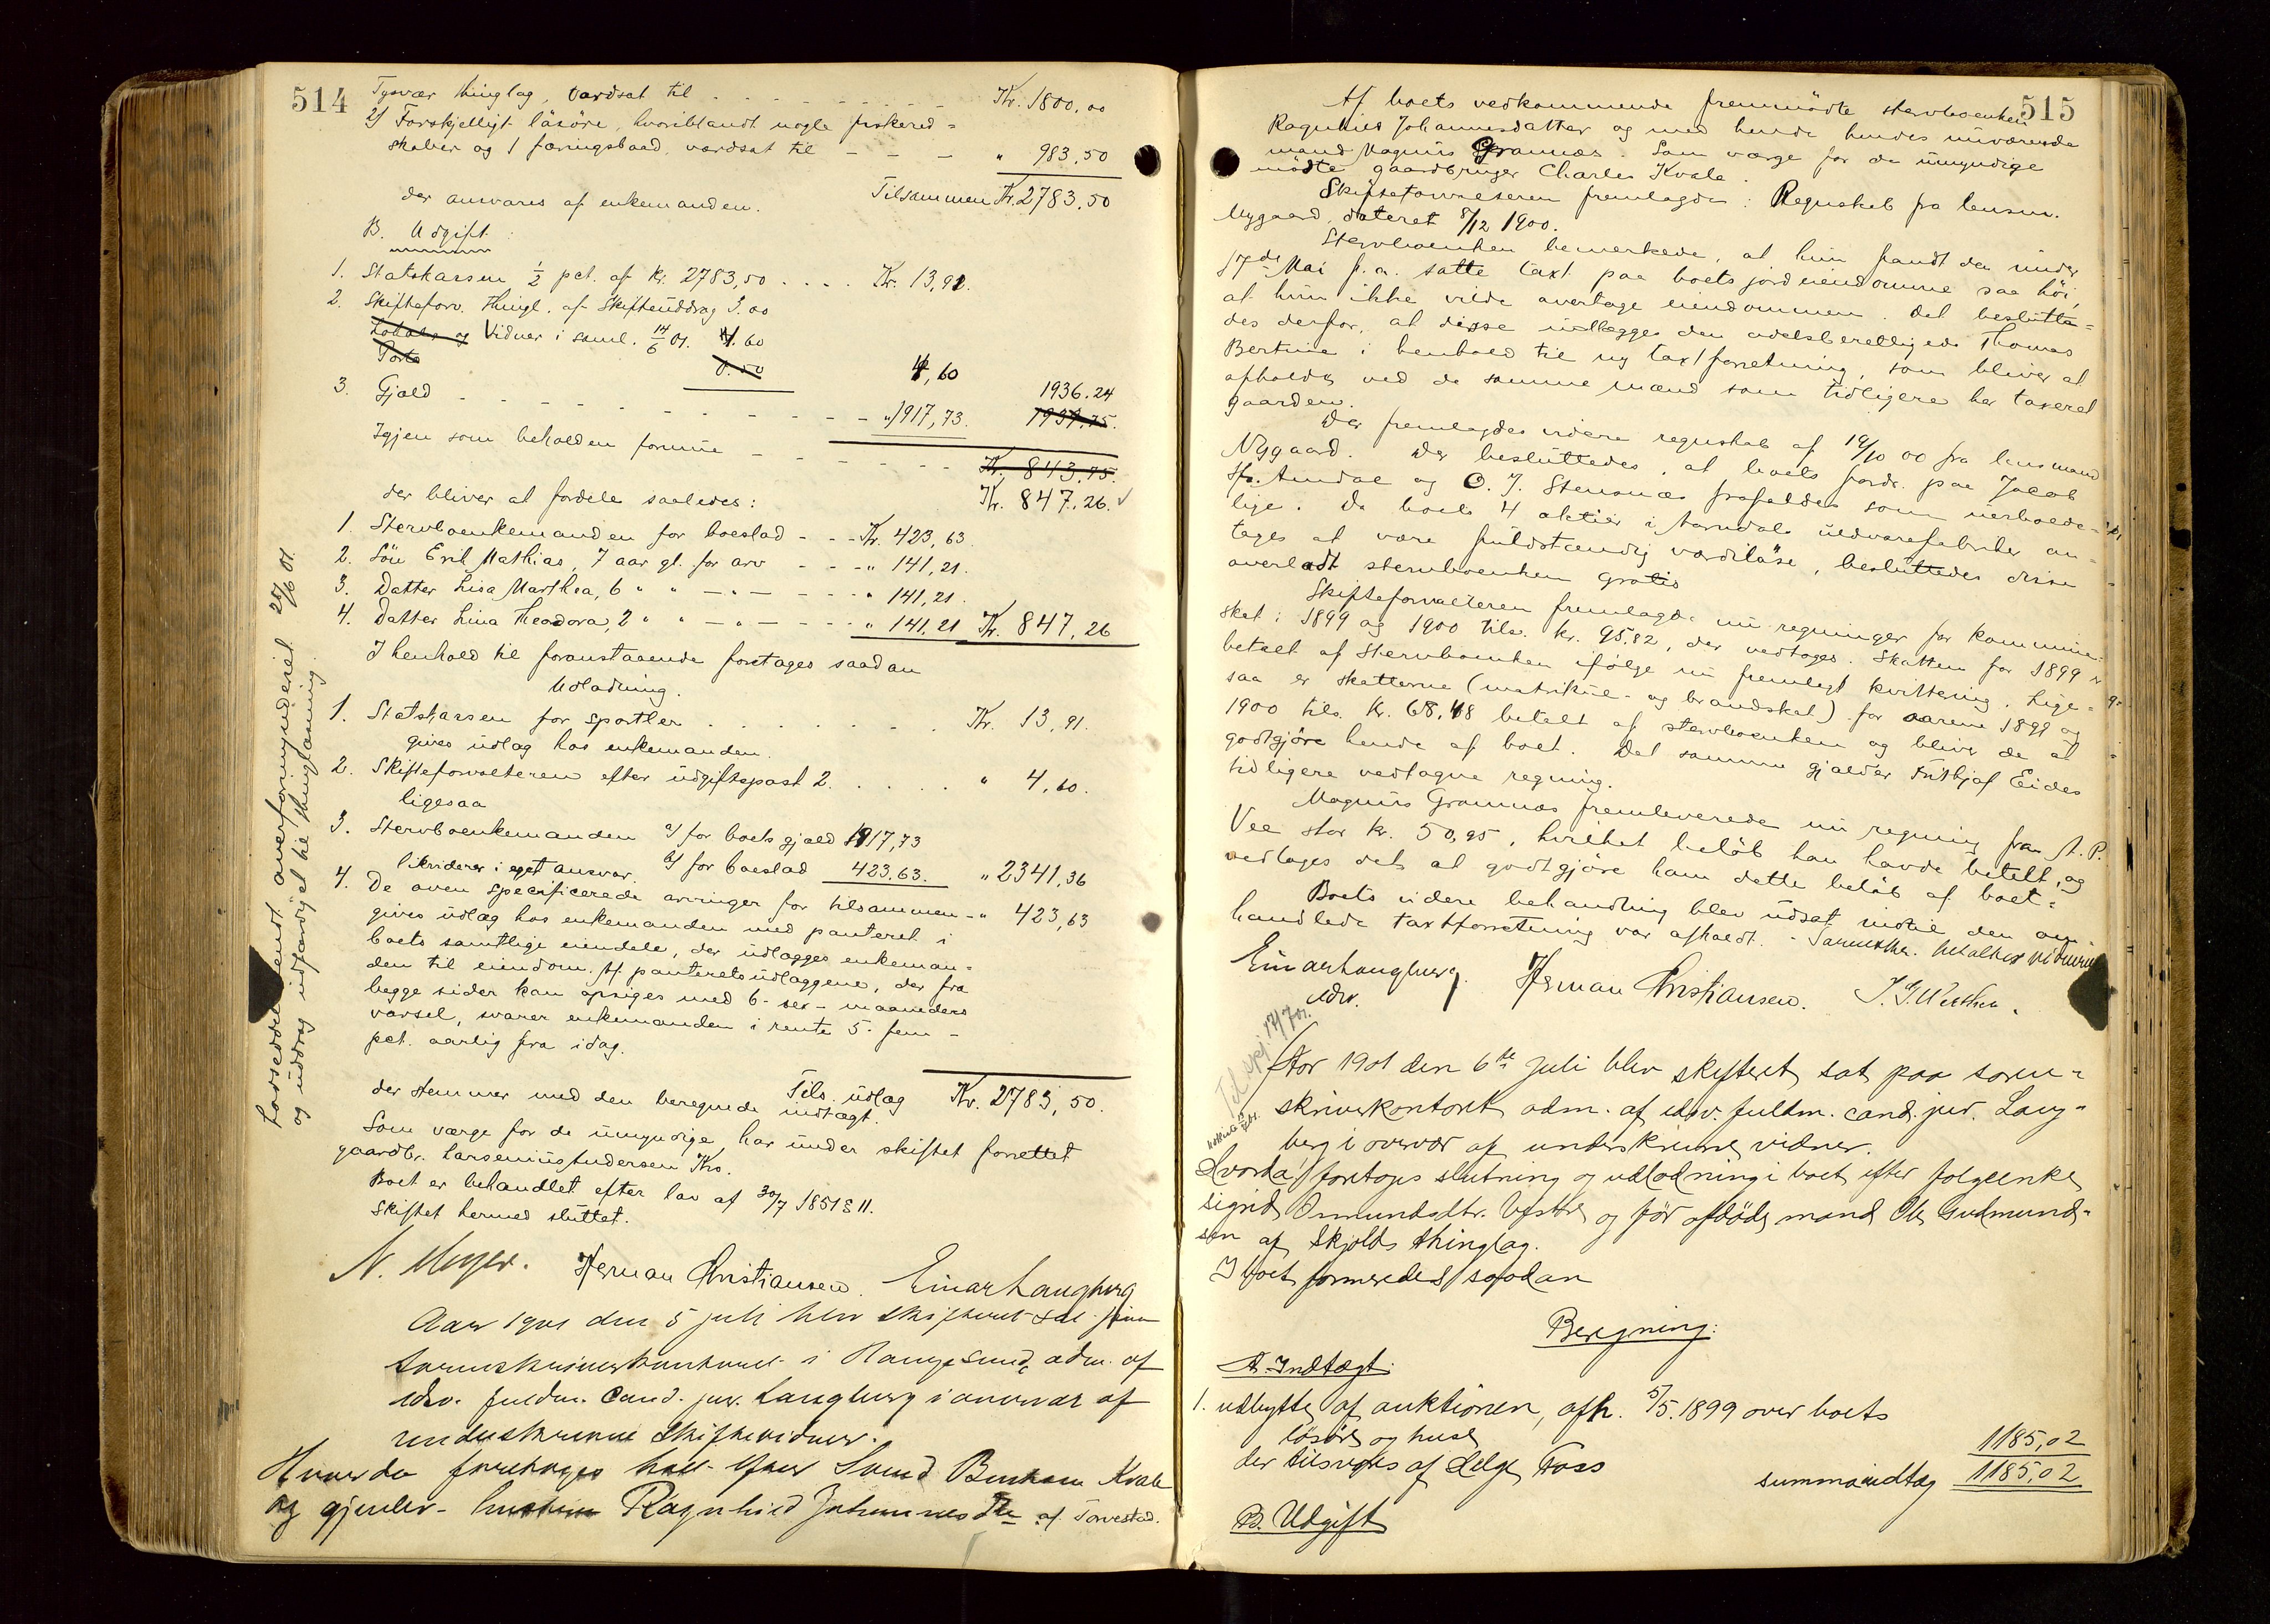 514
Tysvær thinglag, værdsat til - - - - - - - Kr. 1800,00
2) Forskjelligt läsöre, hvoriblandt nogle fiskered=
skaber og 1 færingsbaad, værdsat til - - - " 983,50
Tilsammen Kr. 2783,50
der ansvares af enkemanden.
B. Udgift:
1. Statskassen ½ pct. af Kr. 2783,50 . . . . Kr. 13,91.
2. Skifteforv. thingl. af skifteuddrag 3.00
Lokale og Vidner i saml. 14/6 01. 1.60
Porto 0.50 4,60
3. Gjæld - - - - - - - - - - - - "1917,73. 1936.24
1939.75.
Igjen som beholden formue - - - - - - - Kr. 843,75.
Kr. 847,26.
der bliver at fordele saaledes:
1. Stervboenkemanden for boeslod - - - Kr. 423,63.
2. Sön Emil Mathias, 7 aar gl. for arv - - - " 141,21.
3. Datter Lisa Marthea, 6 " " - " - - - - " 141,21.
4. Datter Lina Theodora, 2 " " - " - - - - " 141,21 Kr. 847,26
I henhold til foranstaaende foretages saadan
Udlodning.
1. Statskassen for sportler . . . . . . . . Kr. 13,91.
gives udlag hos enkemanden.
2. Skifteforvalteren efter udgiftspost 2. . . . . . " 4,60.
ligesaa
3. Stervboenkemanden a/ for boets gjæld 1917,73
likviderer i eget ansvar. b/ for boeslod 423.63. " 2341,36
4. De oven specificerede arvinger for tilsammen - " 423,63
gives udlæg hos enkemanden med panteret i
boets samtlige eiendele, der udlægges enkeman=
den til eiendom. Af panteretsudlæggene, der fra
begge sider kan opsiges med 6- sex - maaneders
varsel, svarer enkemanden i rente 5- fem -
pct. aarlig fra idag.
Tils. udlæg Kr. 2783,50.
der stemmer med den beregnede indtægt.
Som værge for de umyndige, har under skiftet forrettet
gaardbr. Larsenius Andersen Kro.
Boet er behandlet efter lov af 30/7 1851 § 11.
Skiftet hermed sluttet.
N. Meyer. Herman Christiansen. Einar Langberg
Aar 1901 den 5 juli blev skifteret sat paa
sorenskriverkontoret i Haugesund, adm. af
edsv. fuldm. cand. jur. Langberg i overvær af
underskrevne skiftevidner.
Hvorda foretoges boet efter Svend Kvale
og gjenlev. Ragnhild Johannesdtr. af Torvestad.
Lodseddel sendt overformynderiet 25/6 01.
og uddrag udfærdiget til thinglæsning.
515
Af boets vedkommende fremmödte stervboenken
Ragnhild Johannesdatter og med hende hendes nuværende
mand Magnus Grannæs. Som værge for de umyndige
mödte gaardbruger Charles Kvale.
Skifteforvalteren fremlagde: Regnskab fra lensm.
Nygaard, dateret 8/12 1900.
Stervboenken bemerkede, at hun fandt den under
17de Mai f.a. satte taxt paa boets jordeiendomme saa höi,
at hun ikke vilde overtage eiendommen. Det beslutte=
des derfor, at disse udlægges den odelsberettigede Thomas
Bertin i henhold til ny taxtforretning, som bliver at
afholde ved de samme mænd som tidligere har taxeret
gaarden.
Der fremlagdes videre regnskab af 19/10 00 fra lensmand
Nygaard. Der besluttedes, at boets fordr. paa Jacob
Hs. Amdal og O. J. Stensnæs frafaldes som uerholde-
lige. Da boets 4 aktier i uldvarefabriker an=
tages at være fuldstændig værdilöse, besluttedes disse
overladt stervboenken gratis
Skifteforvalteren fremlagde nu regninger for kommune-
skat: 1899 og 1900 tils. kr. 95.82, der vedtoges. Skatten for 1899 er
betalt af stervboenken ifölge nu fremlagt kvittering. Lige=
saa er skatterne (matrikul- og brandskat) for aarene 1899 og
1900 tils. kr. 68,48 betalt af stervboenken og bliver de at
godtgjöre hende af boet. Det samme gjælder Frithjof Eides
tidligere vedtagne regning.
Magnus Grannæs fremleverede nu regning fra A. P.
Vee stor kr. 50,95, hvilket belöb han havde betalt, og
vedtoges det at godtgjöre ham dette belöb af boet.
Boets videre behandling blev udsat indtil den om-
handlede taxtforretning var afholdt. - betaltes vidnerne
Einar Langberg Herman Christiansen.
edsv.
Aar 1901 den 6te Juli blev skifteret sat paa soren=
skriverkontoret adm. af edsv. fuldm. cand. jur. Lang-
berg i overvær af underskrevne vidner.
Hvorda foretoges slutning og udlodning i boet efter folgeenke
Sigrid Omundsdtr. og för afdöde mand Ole Gudmund-
sen af Skjolds thinglag.
I boet formeredes saadan
Beregning:
A. Indtægt.
1. udbytte af auktionen, afh. 5/5. 1899 over boets
lösöre og huse 1185,02
der tilsvares af Helge Foss summa indtæg 1185,02
B. Udgift